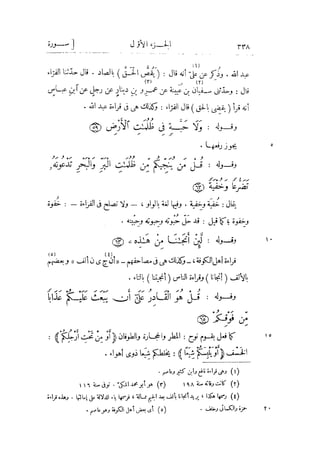 ٣٣٨ الجزء الأول [ سورة
عبد الله . وذكر عن علىّ (١) أنه قال : ( يَقُصُّ الحقّ ) بالصاد . قال حدّثنا الفرّاء
قال : وحدّثنى سفيان (٢) بن عيينة عن عمرو (٣) بن دينار عن رجل عن ابن عباس
أنه قرأ ( يقضى بالحق ) قال الفرّاء : وكذلك هى فى قراءة عبد الله .
وقوله : وَلَا حَبَّةٍ فِى ظُلُمَٰتِ ٱلْأَرْضِ ﴿٥٩﴾
٥ يجوز رفعها .
وقوله : قُلْ مَن يُنَجِّيكُم مِّن ظُلُمَٰتِ ٱلْبَرِّ وَٱلْبَحْرِ تَدْعُونَهُۥ
تَضَرُّعًا وَخُفْيَةً ﴿٦٣﴾
يقال : خُفية وخِفية . وفيها لغة بالواو ، – ولا تصلح فى القراءة – : خُفوة
وخِفوة ؛ كما قيل : قد حلّ حُبوته وحِبوته وحِبيته .
١٠ وقوله : لَّئِنْ أَنجَيْتَنَا مِنْ هَٰذِهِۦ ﴿٦٣﴾
قراءة أهل الكوفة ، وكذلك هى فى مصاحفهم » أ ن ج ى ن ألف (٤) « وبعضهم (٥)
بالألف ( أنجانا ) وقراءة الناس ( أنجيتنا ) بالتاء .
وقوله : قُلْ هُوَ ٱلْقَادِرُ عَلَىٰٓ أَن يَبْعَثَ عَلَيْكُمْ عَذَابًا
مِّن فَوْقِكُمْ ﴿٦٥﴾
١٥ كما فعل بقوم نوح : المطر والحجارة والطوفان ﴿ أَوْ مِن تَحْتِ أَرْجُلِكُمْ ﴾ :
الخسف ﴿ أَوْ يَلْبِسَكُمْ شِيَعًا ﴾ : يخلطكم شيعا ذوى أهواء .
(١) وهى قراءة نافع وابن كثير وعاصم .
(٢) كانت وفاته سنة ١٩٨ (٣) هو أبو محمد المكىّ . توفى سنة ١١٦
(٤) رسمها هكذا ، يريد أنجانا بألف بعد الجيم ممالة ، فرسمها ياء للدلالة على إمالتها . وهذه قراءة
٢٠ حمزة والكسائى وخلف . (٥) أى بعض أهل الكوفة وهو عاصم .